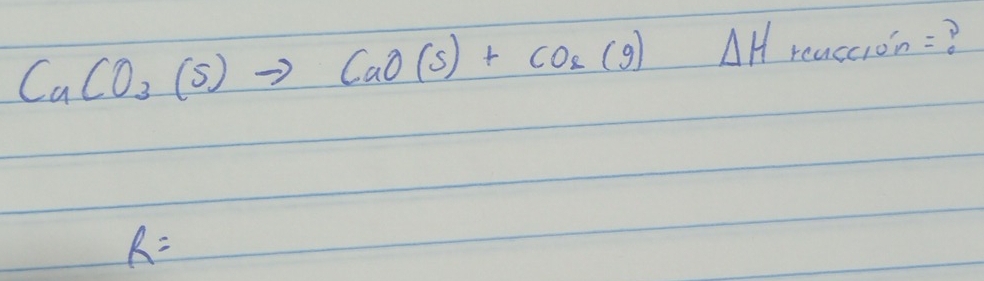 CaCO₃ (s) → CaO (s) + CO₂ (g) ΔH reacción = ?
R=